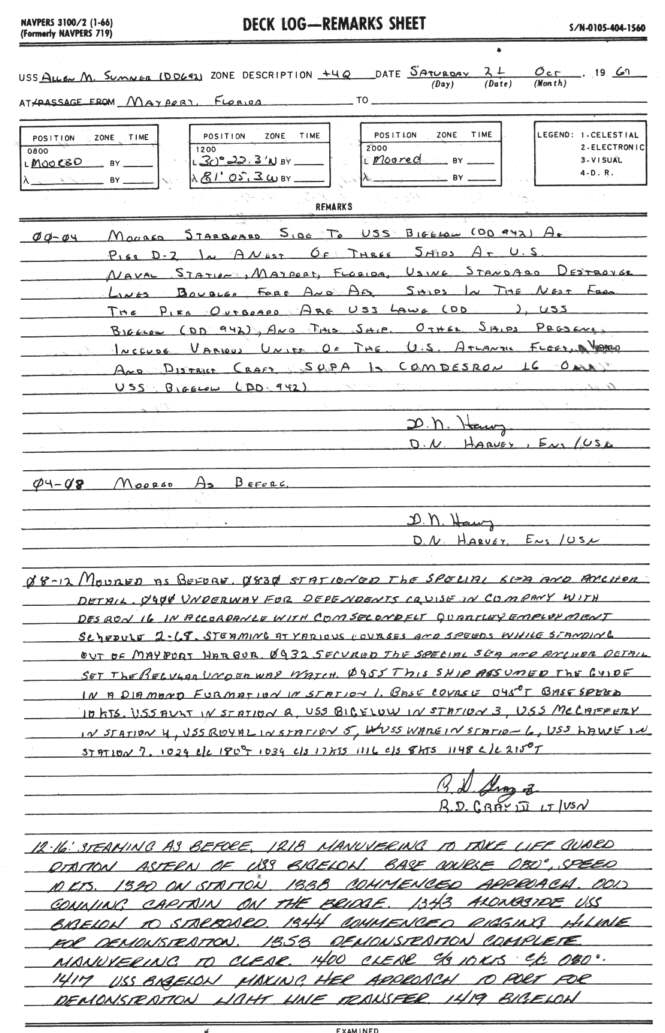 NAVPERS 3100/2 (1-66)
(Formerly NAVPERS 719)
DECK LOG—REMARKS SHEET
S/N-0105-404-1560
USS ALLEN M. SUMNER (DD692) ZONE DESCRIPTION +4Q DATE SATURDAY 21 OCT, 1967
(Day) (Date) (Month)
AT/PASSAGE FROM MAYPORT, FLORIDA TO
POSITION ZONE TIME
0800
L MOORED BY
λ BY
POSITION ZONE TIME
1200
L 30° 22.3'N BY
λ 81° 05.3W BY
POSITION ZONE TIME
2000
L Moored BY
λ BY
LEGEND: 1-CELESTIAL
2-ELECTRONIC
3-VISUAL
4-D. R.
REMARKS
00-04 MOORED STARBOARD SIDE TO USS BIGELOW (DD 942) AT
PIER D-2 IN A NEST OF THREE SHIPS AT U.S.
NAVAL STATION, MAYPORT, FLORIDA, USING STANDARD DESTROYER
LINES DOUBLED FORE AND AFT. SHIPS IN THE NEST FROM
THE PIER OUTBOARD ARE USS LAWE (DD ), USS
BIGELOW (DD 942), AND THIS SHIP. OTHER SHIPS PRESENT
INCLUDE VARIOUS UNITS OF THE U.S. ATLANTIC FLEET, YARD
AND DISTRICT CRAFT. SOPA IS COMDESRON 16
USS BIGELOW (DD 942)
D. N. Harvey
D. N. HARVEY, ENS/USN
04-08 MOORED AS BEFORE.
D. N. Harvey
D. N. HARVEY, ENS/USN
08-12 MOORED AS BEFORE. 0830 STATIONED THE SPECIAL SEA AND ANCHOR
DETAIL. 0900 UNDERWAY FOR DEPENDENTS CRUISE IN COMPANY WITH
DESRON 16 IN ACCORDANCE WITH COMSECONDFLT QUARTLEY EMPLOYMENT
SCHEDULE 2-68. STEAMING AT VARIOUS COURSES AND SPEEDS WHILE STANDING
OUT OF MAYPORT HARBOR. 0932 SECURED THE SPECIAL SEA AND ANCHOR DETAIL
SET THE REGULAR UNDERWAY WATCH. 0955 THIS SHIP ASSUMED THE GUIDE
IN A DIAMOND FORMATION IN STATION 1. BASE COURSE 045°T BASE SPEED
10 KTS. USS AULT IN STATION 2, USS BIGELOW IN STATION 3, USS McCAFFERY
IN STATION 4, USS ROYAL IN STATION 5, USS WARE IN STATION 6, USS LAWE IN
STATION 7. 1029 C/C 180°T 1039 C/S 17 KTS 1116 C/S 8 KTS 1148 C/C 215°T
R. D. Gray III
R. D. GRAY III LT/USN
12-16: STEAMING AS BEFORE, 1218 MANUVERING TO TAKE LIFE GUARD
STATION ASTERN OF USS BIGELOW. BASE COURSE 080°, SPEED
10 KTS. 1320 ON STATION. 1338 COMMENCED APPROACH. OOD
CONNING CAPTAIN ON THE BRIDGE. 1343 ALONGSIDE USS
BIGELOW TO STARBOARD. 1344 COMMENCED RIGGING HILINE
FOR DEMONSTRATION. 1353 DEMONSTRATION COMPLETE
MANUVERING TO CLEAR. 1400 CLEAR C/S 10 KTS C/C 080°.
1417 USS BIGELOW MAKING HER APPROACH TO PORT FOR
DEMONSTRATION LIGHT LINE TRANSFER. 1419 BIGELOW
EXAMINED